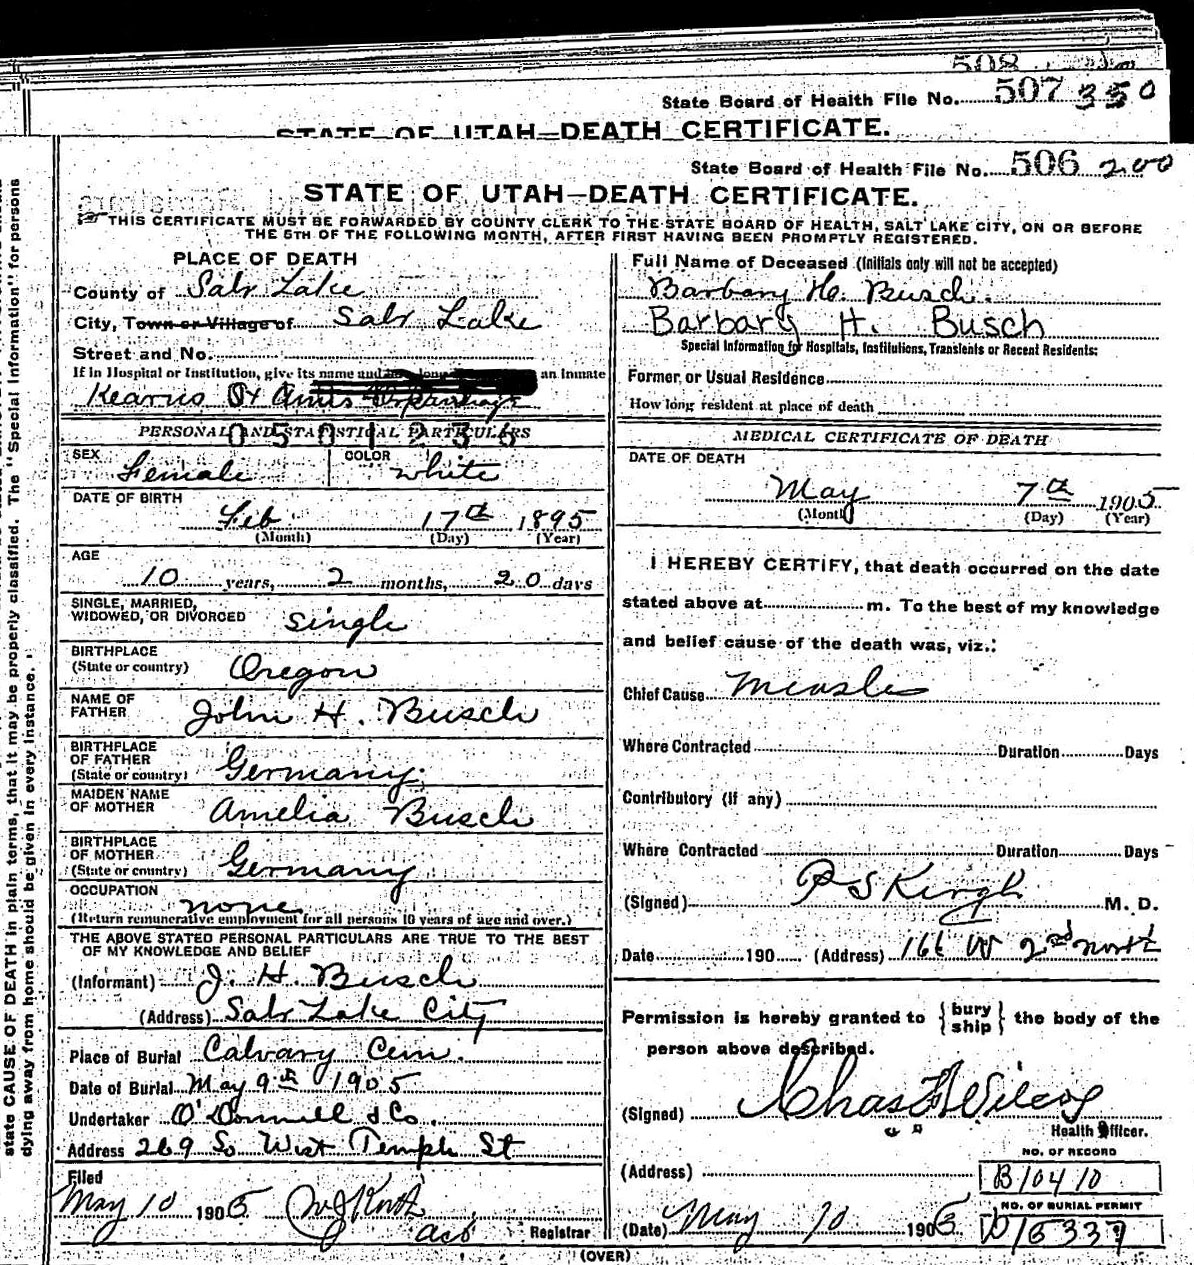 508
State Board of Health File No. 507 350
STATE OF UTAH—DEATH CERTIFICATE.
State Board of Health File No. 506 200
STATE OF UTAH—DEATH CERTIFICATE.
THIS CERTIFICATE MUST BE FORWARDED BY COUNTY CLERK TO THE STATE BOARD OF HEALTH, SALT LAKE CITY, ON OR BEFORE
THE 5TH OF THE FOLLOWING MONTH, AFTER FIRST HAVING BEEN PROMPTLY REGISTERED.
state CAUSE OF DEATH in plain terms, that it may be properly classified. The "Special Information" for persons
dying away from home should be given in every instance.
PLACE OF DEATH
County of Salt Lake
City, Town or Village of Salt Lake
Street and No.
If in Hospital or Institution, give its name and long an inmate
Kearns St Ann's Orphanage
0501236
PERSONAL AND STATISTICAL PARTICULARS
SEX Female COLOR white
DATE OF BIRTH
Feb 17th 1895
(Month) (Day) (Year)
AGE
10 years, 2 months, 20 days
SINGLE, MARRIED,
WIDOWED, OR DIVORCED single
BIRTHPLACE
(State or country) Oregon
NAME OF
FATHER John H. Busch
BIRTHPLACE
OF FATHER
(State or country) Germany
MAIDEN NAME
OF MOTHER Amelia Busch
BIRTHPLACE
OF MOTHER
(State or country) Germany
OCCUPATION none
(Return remunerative employment for all persons 10 years of age and over.)
THE ABOVE STATED PERSONAL PARTICULARS ARE TRUE TO THE BEST
OF MY KNOWLEDGE AND BELIEF
(Informant) J. H. Busch
(Address) Salt Lake City
Place of Burial Calvary Cem.
Date of Burial May 9th 1905
Undertaker O'Donnell & Co.
Address 269 So West Temple St
Filed
May 10 1905
Registrar
Full Name of Deceased (Initials only will not be accepted)
Barbary H. Busch.
Barbary H. Busch
Special Information for Hospitals, Institutions, Transients or Recent Residents:
Former or Usual Residence
How long resident at place of death
MEDICAL CERTIFICATE OF DEATH
DATE OF DEATH
May 7th 1905
(Month) (Day) (Year)
I HEREBY CERTIFY, that death occurred on the date
stated above at m. To the best of my knowledge
and belief cause of the death was, viz.:
Chief Cause Measles
Where Contracted Duration Days
Contributory (if any)
Where Contracted Duration Days
(Signed) M. D.
Date 190 (Address) 166 W 2nd North
Permission is hereby granted to {bury
ship} the body of the
person above described.
(Signed) Chas F Wilcox
Health Officer.
NO. OF RECORD
(Address) B10410
NO. OF BURIAL PERMIT
(Date) May 10 1905 15337
(OVER)